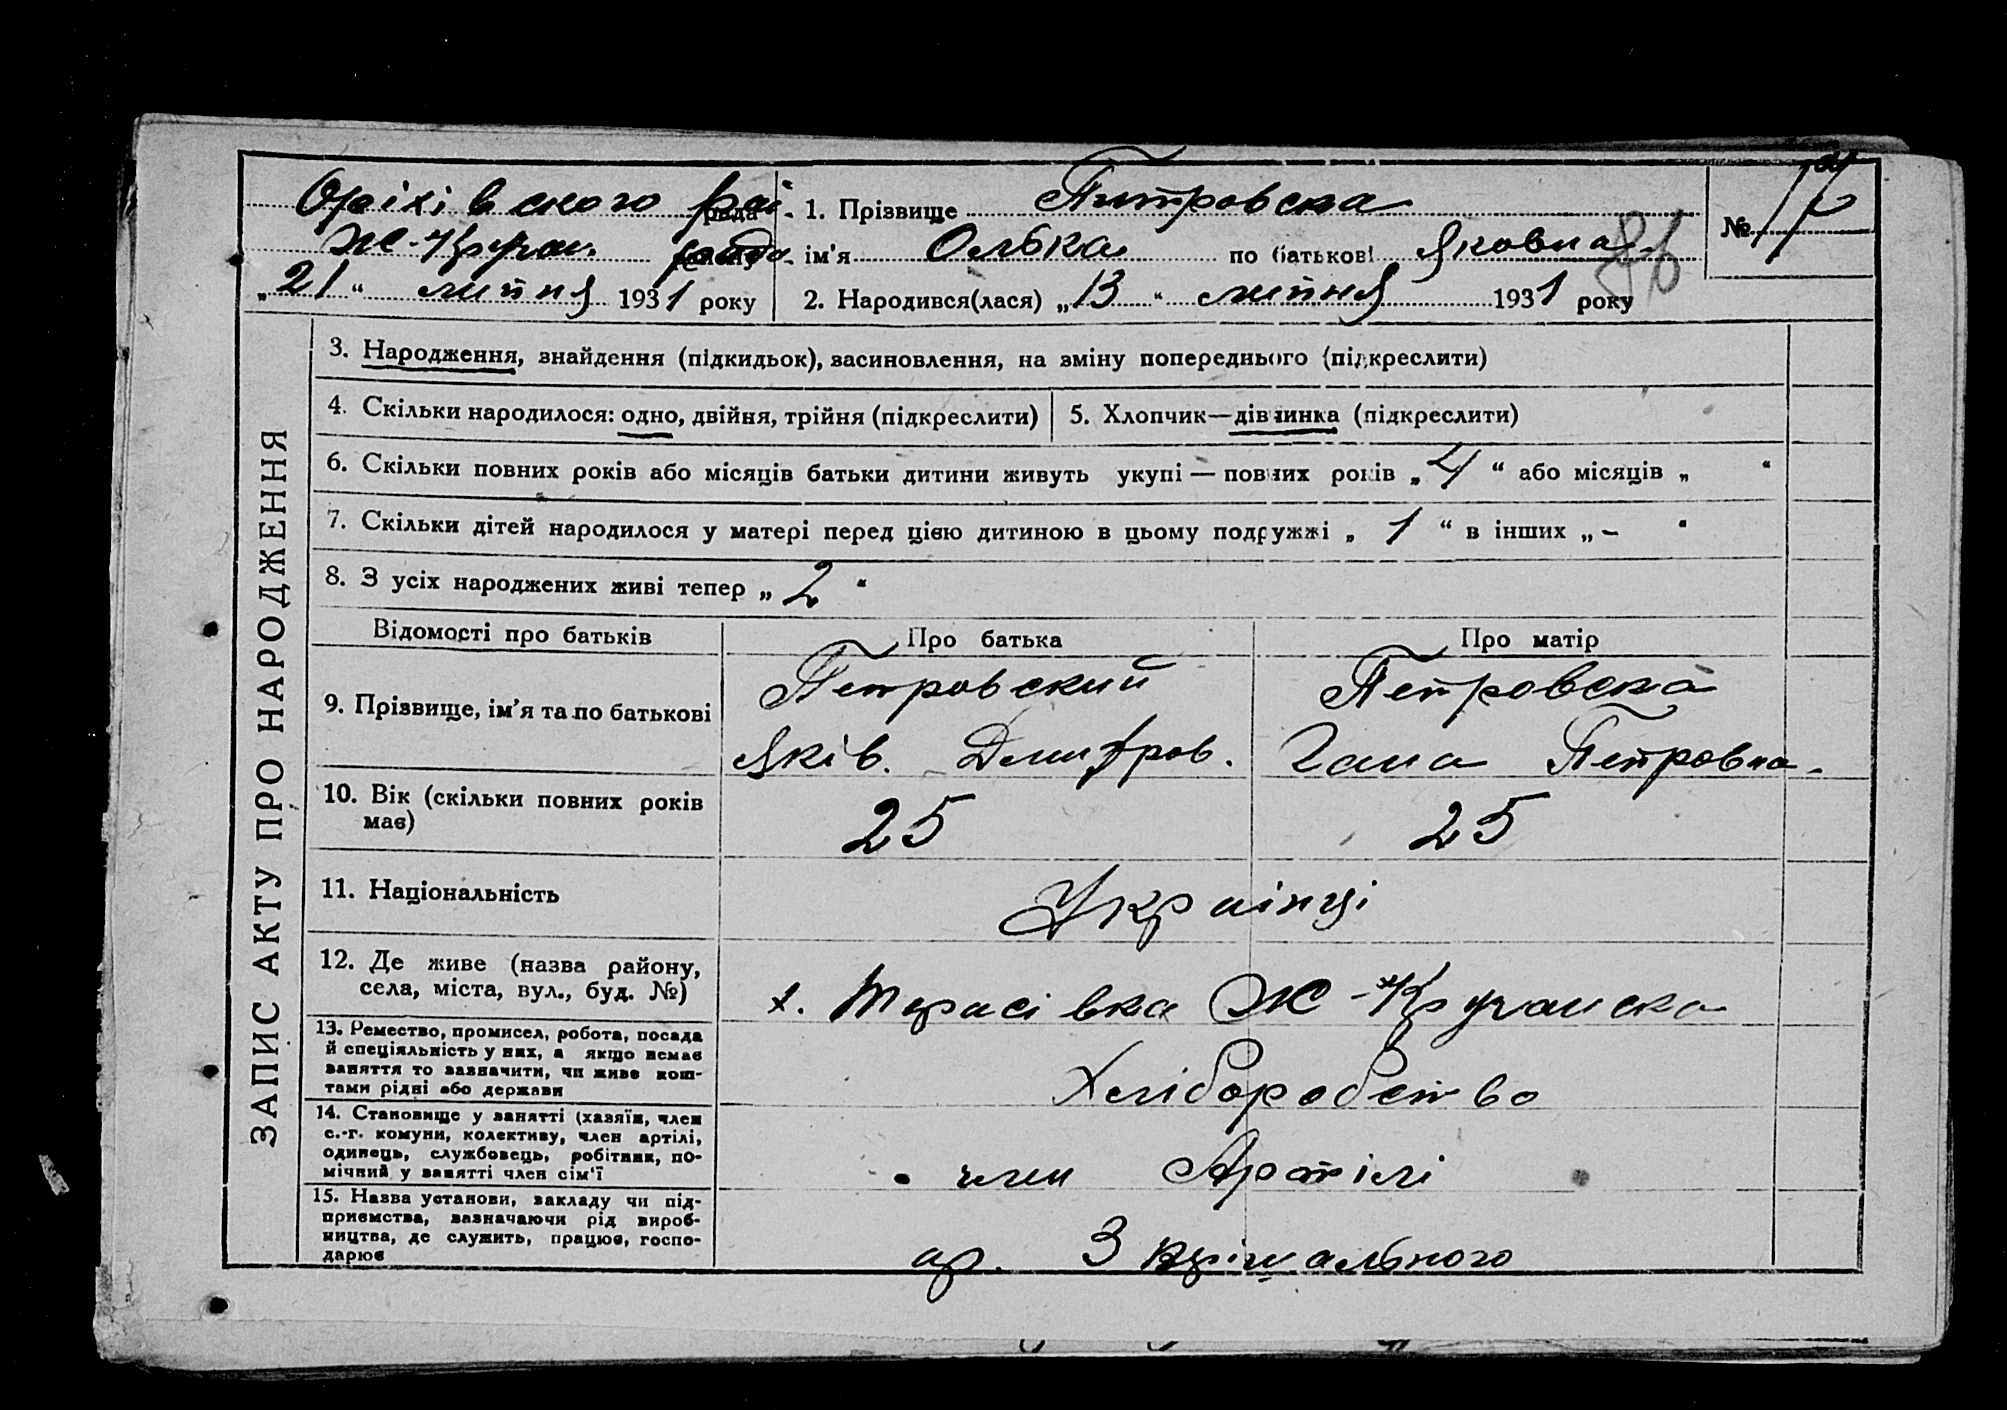 Оріхівского рай-
Ж-Круган. рада
„21“ липня 1931 року
1. Прізвище Питровска
ім'я Олька по батькові Яковна
2. Народився(лася) „13“ липня 1931 року
№ 17
86
ЗАПИС АКТУ ПРО НАРОДЖЕННЯ
3. Народження, знайдення (підкидьок), засиновлення, на зміну попереднього (підкреслити)
4. Скільки народилося: одно, двійня, трійня (підкреслити)
5. Хлопчик—дівчинка (підкреслити)
6. Скільки повних років або місяців батьки дитини живуть укупі — повних років „4“ або місяців „ “
7. Скільки дітей народилося у матері перед цією дитиною в цьому подружжі „1“ в інших „-“
8. З усіх народжених живі тепер „2“
Відомості про батьків Про батька Про матір
9. Прізвище, ім'я та по батькові
Петровский
Яків. Дмитров.
Петровска
Гана Петровна.
10. Вік (скільки повних років
має)
25 25
11. Національність
Українці
12. Де живе (назва району,
села, міста, вул., буд. №)
х. Тарасівка Ж-Круганска
13. Ремество, промисел, робота, посада
й спеціяльність у них, а якщо немає
заняття то зазначити, чи живе кош-
тами рідні або держави
Хліборобство
14. Становище у занятті (хазяїн, член
с.-г. комуни, колективу, член артілі,
одинець, службовець, робітник, по-
мічний у занятті член сім'ї
член Артілі
15. Назва установи, закладу чи під-
приємства, зазначаючи рід вироб-
ництва, де служить, працює, госпо-
дарює
ар. 3 Врішального